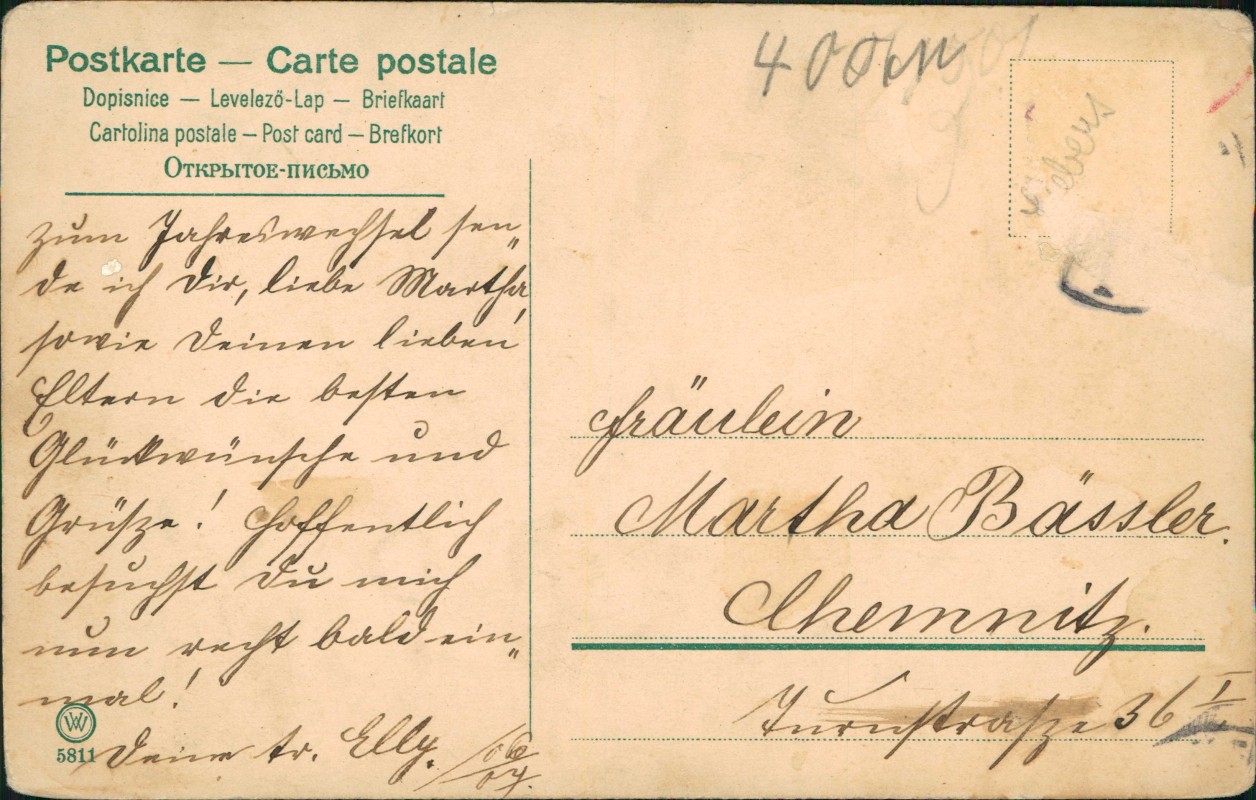 Postkarte — Carte postale
Dopisnice — Levelező-Lap — Briefkaart
Cartolina postale — Post card — Brefkort
Открытое-письмо
Zum Jahreswechsel sen„
de ich Dir, liebe Martha,
sowie Deinen lieben
Eltern die besten
Glückwünsche und
Grüsze! Hoffentlich
besuchst Du mich
nun recht bald ein„
mal!
Deine tr. Elly. 06/07.
W
5811
Fräulein
Martha Bässler.
Chemnitz.
Turnstrasze 36 I